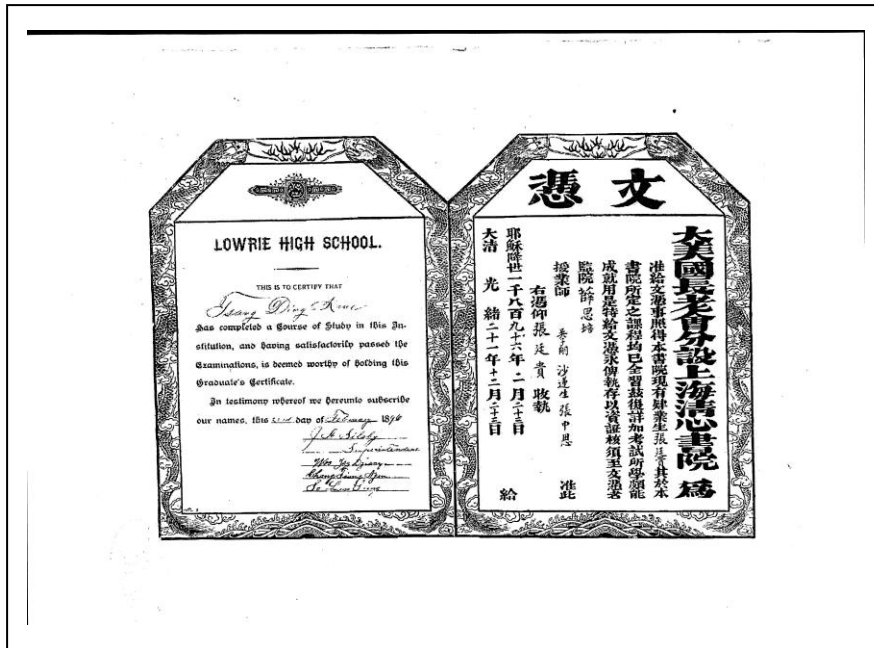 LOWRIE HIGH SCHOOL.
THIS IS TO CERTIFY THAT
Tsang Ding
has completed a Course of Study in this In-
stitution, and having satisfactorily passed the
Examinations, is deemed worthy of holding this
Graduate's Certificate.
In testimony whereof we hereunto subscribe
our names, this day of February 1896
J. A. Silsby
Superintendent
文憑
大美國長老會分設上海清心書院 為
准給文憑事照得本書院現有肄業生張廷貴其於本
書院所定之課程均已全習茲復詳加考試所學頗能
成就用是特給文憑永俾執存以資證核須至文憑者
監院薛思培
授業師 沙蓮生 張中恩 准此
右憑仰張廷貴收執
耶穌降世一千八百九十六年二月二十三日
大清光緒二十一年十二月二十三日 給